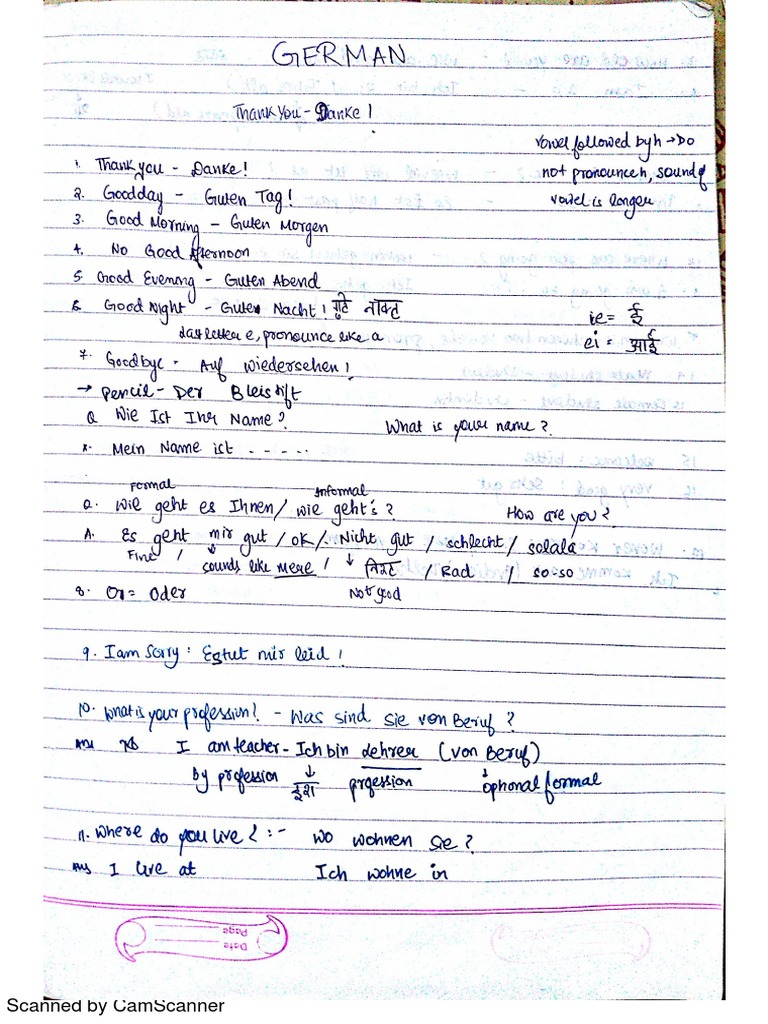 GERMAN
Thank You - Danke!
Vowel followed by h → Do
not pronounce h, sound of
vowel is longer
1. Thank you - Danke!
2. Goodday - Guten Tag!
3. Good Morning - Guten Morgen
4. No Good Afternoon
5. Good Evening - Guten Abend
6. Good Night - Guten Nacht! गुटे नाक्ट
last letter e, pronounce like a
ie = ई
ei = आई
7. Goodbye - Auf wiedersehen!
→ pencil - Der Bleistift
Q Wie Ist Ihr Name? What is your name?
Mein Name ist - - - - -
Formal Informal
Q. Wie geht es Ihnen / wie geht's? How are you?
A. Es geht mir gut / OK /. Nicht gut / schlecht / solala
Fine / ↓ sounds like mere / ↓ / Bad / so-so
Not good
8. Or = Oder
9. I am Sorry: Es tut mir leid!
10. What is your profession? - Was sind sie von Beruf?
Ans I am teacher - Ich bin Lehrer (von Beruf)
by profession ↓ ईश profession ↓ optional formal
11. Where do you live? :- Wo wohnen Sie?
Ans I live at Ich wohne in
Page
Date
Scanned by CamScanner